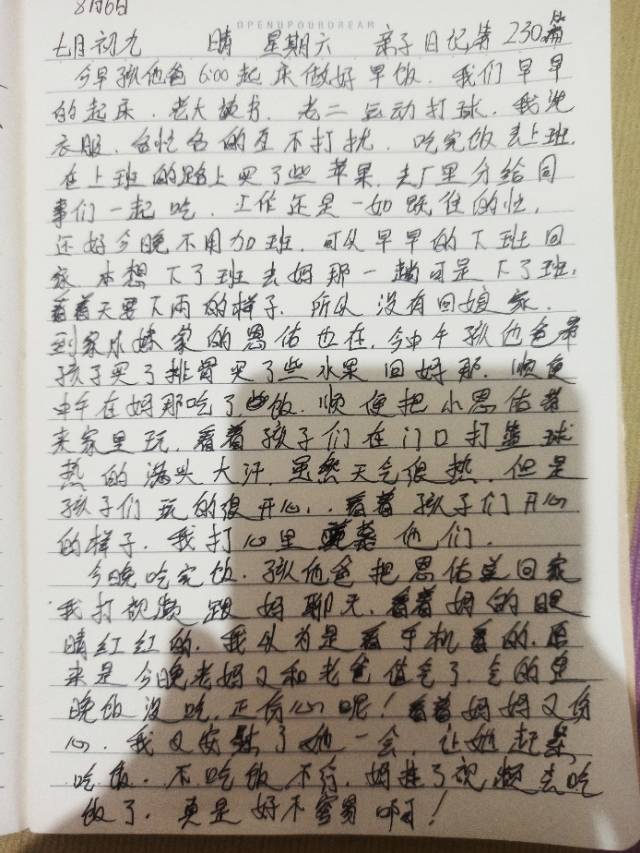 8月6日
OPENUPOURDREAM
七月初九 晴 星期六 亲子日记第230篇
今早孩他爸6:00起来做好早饭. 我们早早
的起床. 老大故书. 老二运动打球. 我洗
衣服. 各忙各的互不打扰. 吃完饭去上班.
在上班的路上买了些苹果. 去厂里分给同
事们一起吃. 工作还是一如既往的忙.
还好今晚不用加班. 可以早早的下班回
家 本想下了班去妈那一趟可是下了班.
看着天要下雨的样子. 所以没有回娘家.
到家小妹家的恩佑也在. 今中午孩他爸带
孩子买了排骨买了些水果回妈那. 顺便
中午在妈那吃了饭. 顺便把小恩佑带
来家里玩. 看着孩子们在门口打篮球
热的满头大汗. 虽然天气很热. 但是
孩子们玩的很开心. 看着孩子们开心
的样子. 我打心里羡慕他们.
今晚吃完饭. 孩他爸把恩佑送回家
我打视频跟妈聊天. 看着妈的眼
睛红红的. 我以为是看手机看的. 原
来是今晚老妈又和老爸值气了. 气的是
晚饭没吃. 正伤心呢! 看着妈妈又伤
心. 我又安慰了她一会. 让她起来
吃饭. 不吃饭不行. 妈挂了视频去吃
饭了. 真是好不容易啊!